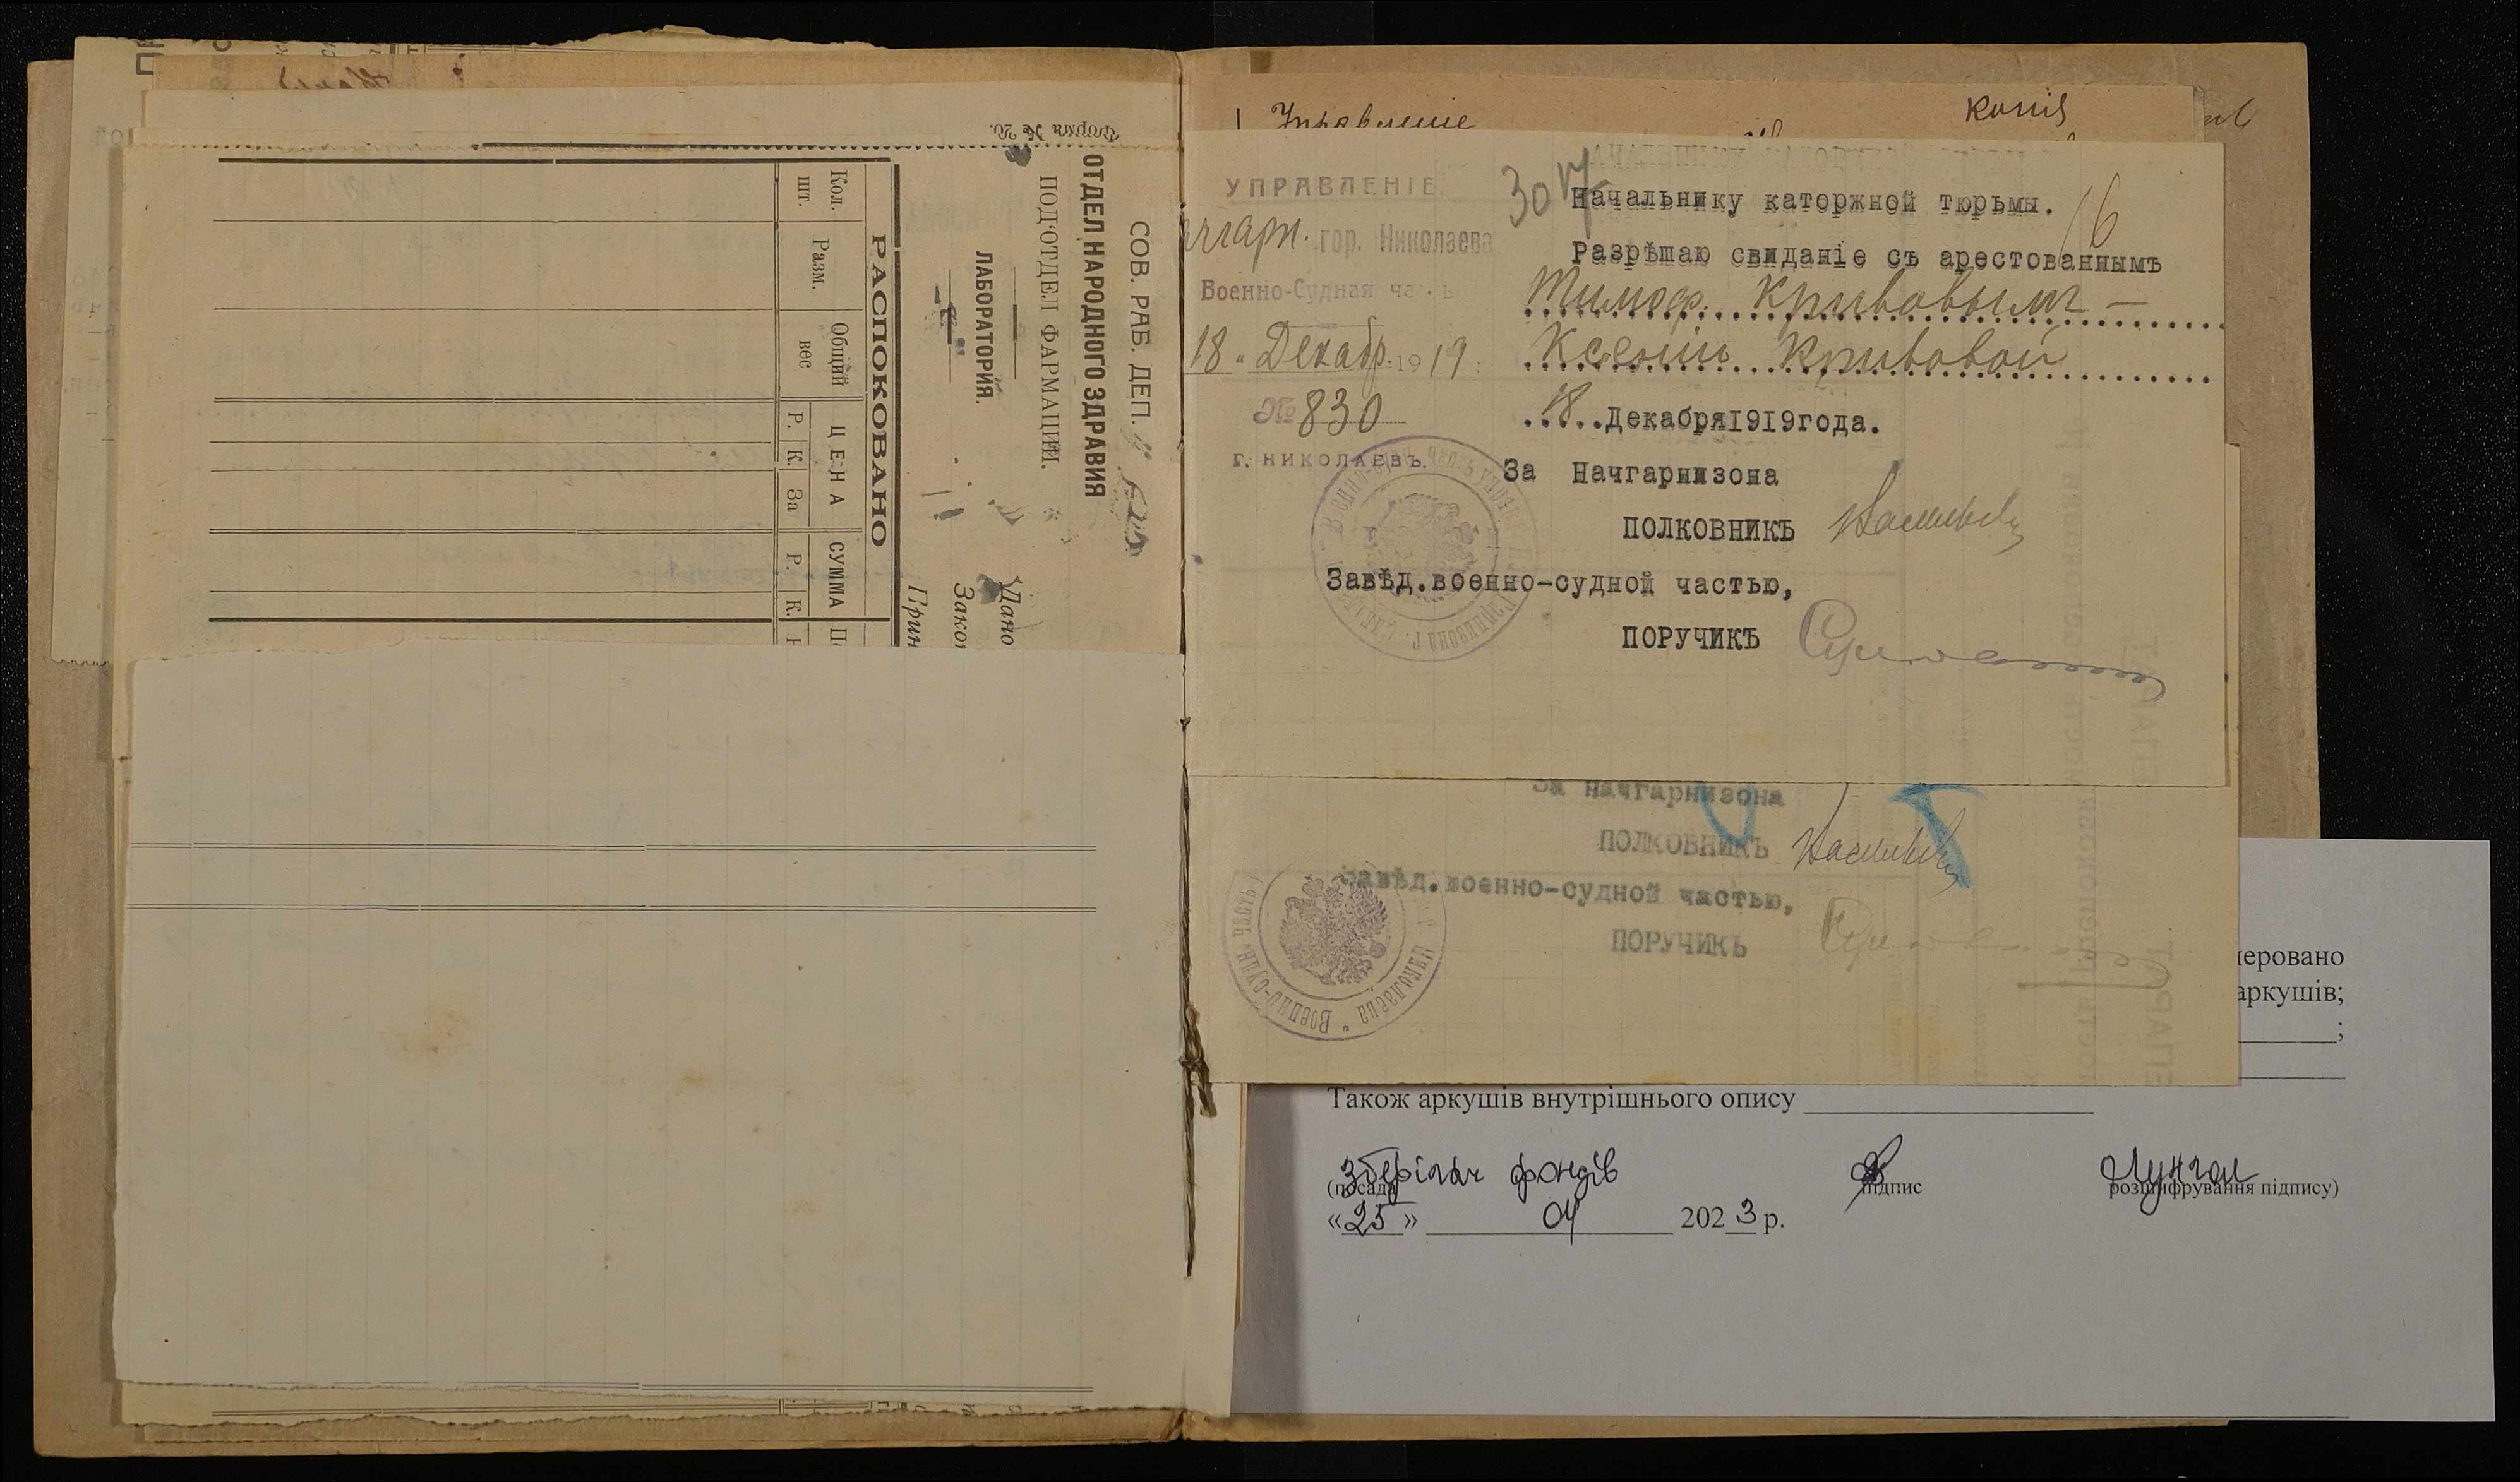 Форма № 20.
СОВ. РАБ. ДЕП.
ОТДЕЛ НАРОДНОГО ЗДРАВИЯ
ПОД'ОТДЕЛ ФАРМАЦИИ.
ЛАБОРАТОРИЯ.
Дано
Зако
Прин
РАСПОКОВАНО
Кол. шт.
Разм.
Общий вес
ЦЕНА
Р. К. За
СУММА
Р. К.
Управление
Копия
УПРАВЛЕНІЕ
Начгарн. гор. Николаева
Военно-Судная часть
18 " Декабр. 1919
№ 830
г. НИКОЛАЕВЪ.
3017
16
Начальнику каторжной тюрьмы.
Разрѣшаю свиданіе съ арестованнымъ
Тимоф. Кривовымъ —
Ксеніи Кривовой
18 Декабря 1919 года.
За Начгарнизона
ПОЛКОВНИКЪ
Завѣд. военно-судной частью,
ПОРУЧИКЪ
За начгарнизона
ПОЛКОВНИКЪ
Завѣд. военно-судной частью,
ПОРУЧИКЪ
неровано
аркушів;
;
Також аркушів внутрішнього опису
Зберігач фондів
(посада підпис розшифрування підпису)
«25» 04 2023 р.